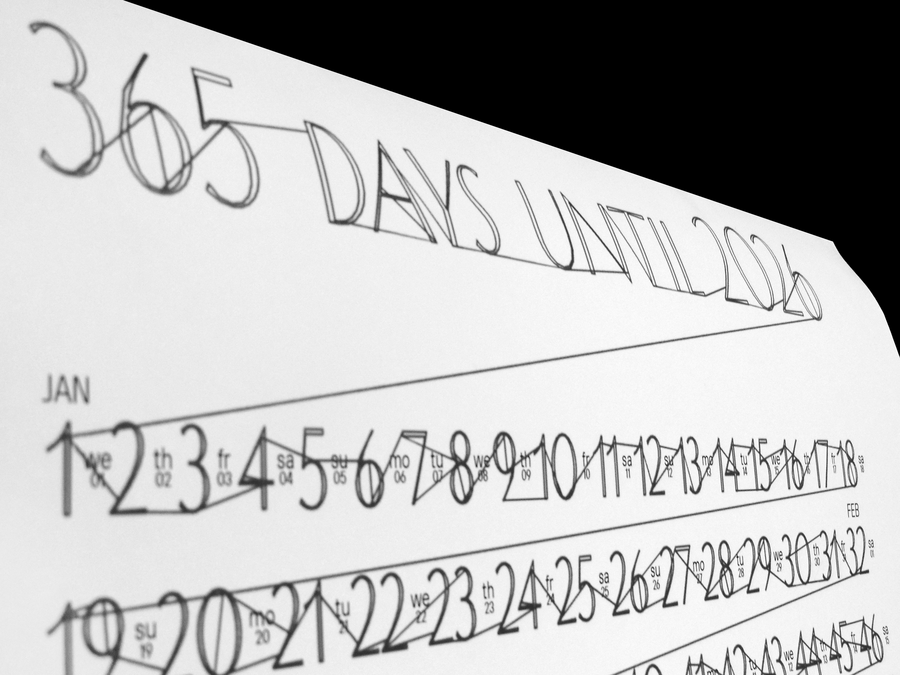 365 DAYS UNTIL 2026
JAN
1 we 01 2 th 02 3 fr 03 4 sa 04 5 su 05 6 mo 06 7 tu 07 8 we 08 9 th 09 10 fr 10 11 sa 11 12 su 12 13 mo 13 14 tu 14 15 we 15 16 th 16 17 fr 17 18 sa 18
FEB
19 su 19 20 mo 20 21 tu 21 22 we 22 23 th 23 24 fr 24 25 sa 25 26 su 26 27 mo 27 28 tu 28 29 we 29 30 th 30 31 fr 31 32 sa 01
42 43 we 12 44 th 13 45 fr 14 46 sa 15